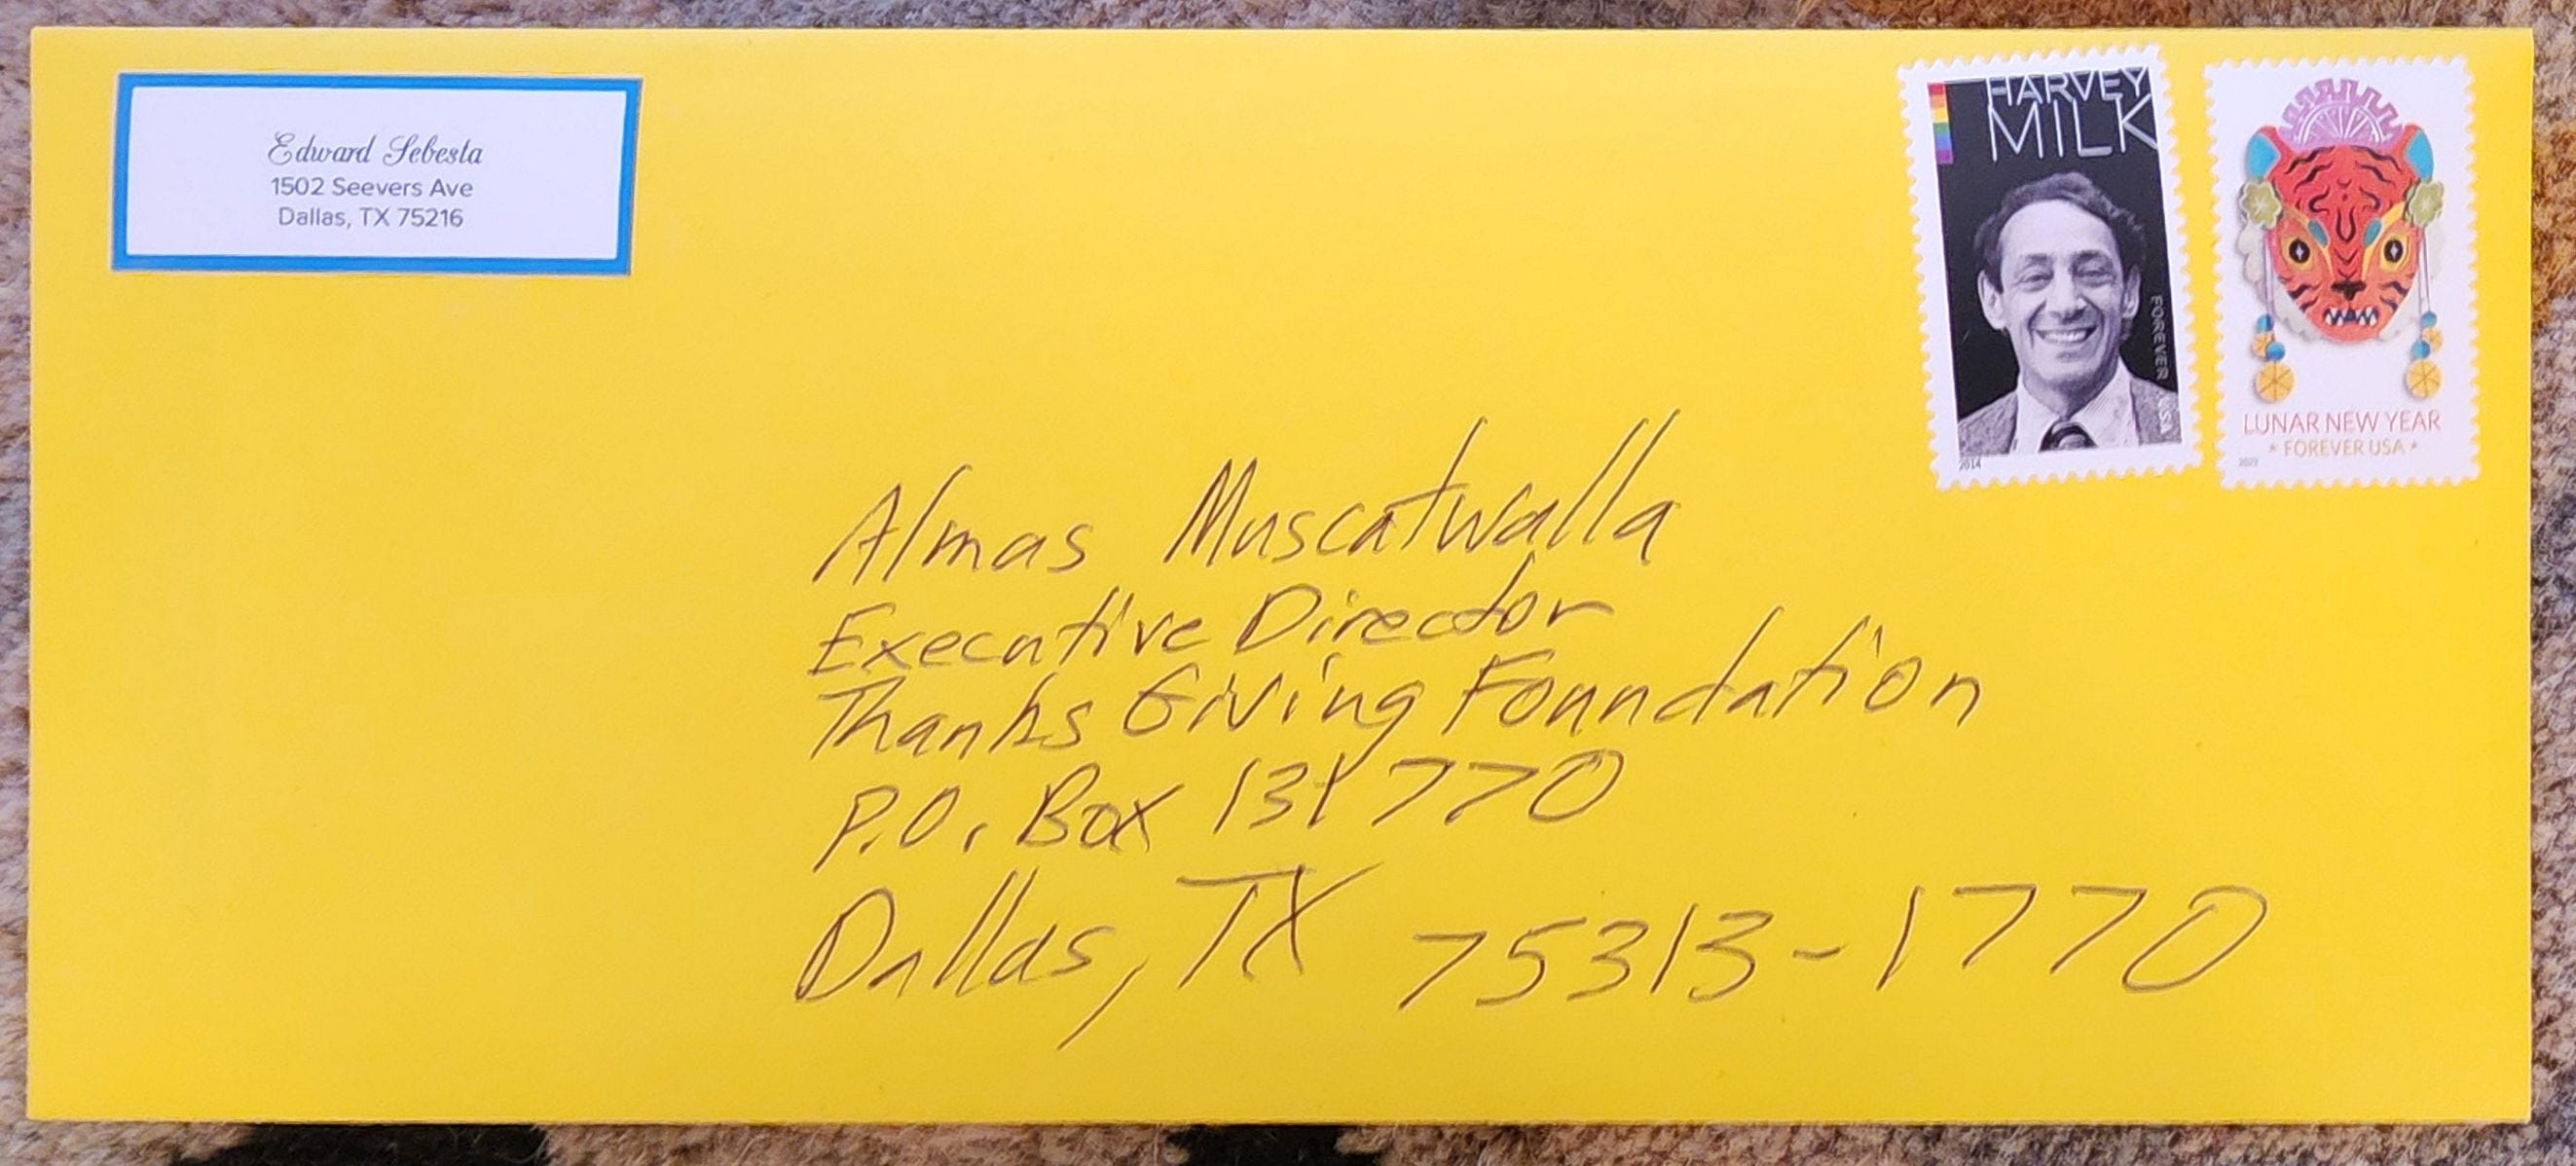 Edward Sebesta
1502 Seevers Ave
Dallas, TX 75216
HARVEY
MILK
FOREVER USA
2014
LUNAR NEW YEAR
* FOREVER USA *
2022
Almas Muscatwalla
Executive Director
Thanks Giving Foundation
P.O. Box 131770
Dallas, TX 75313-1770